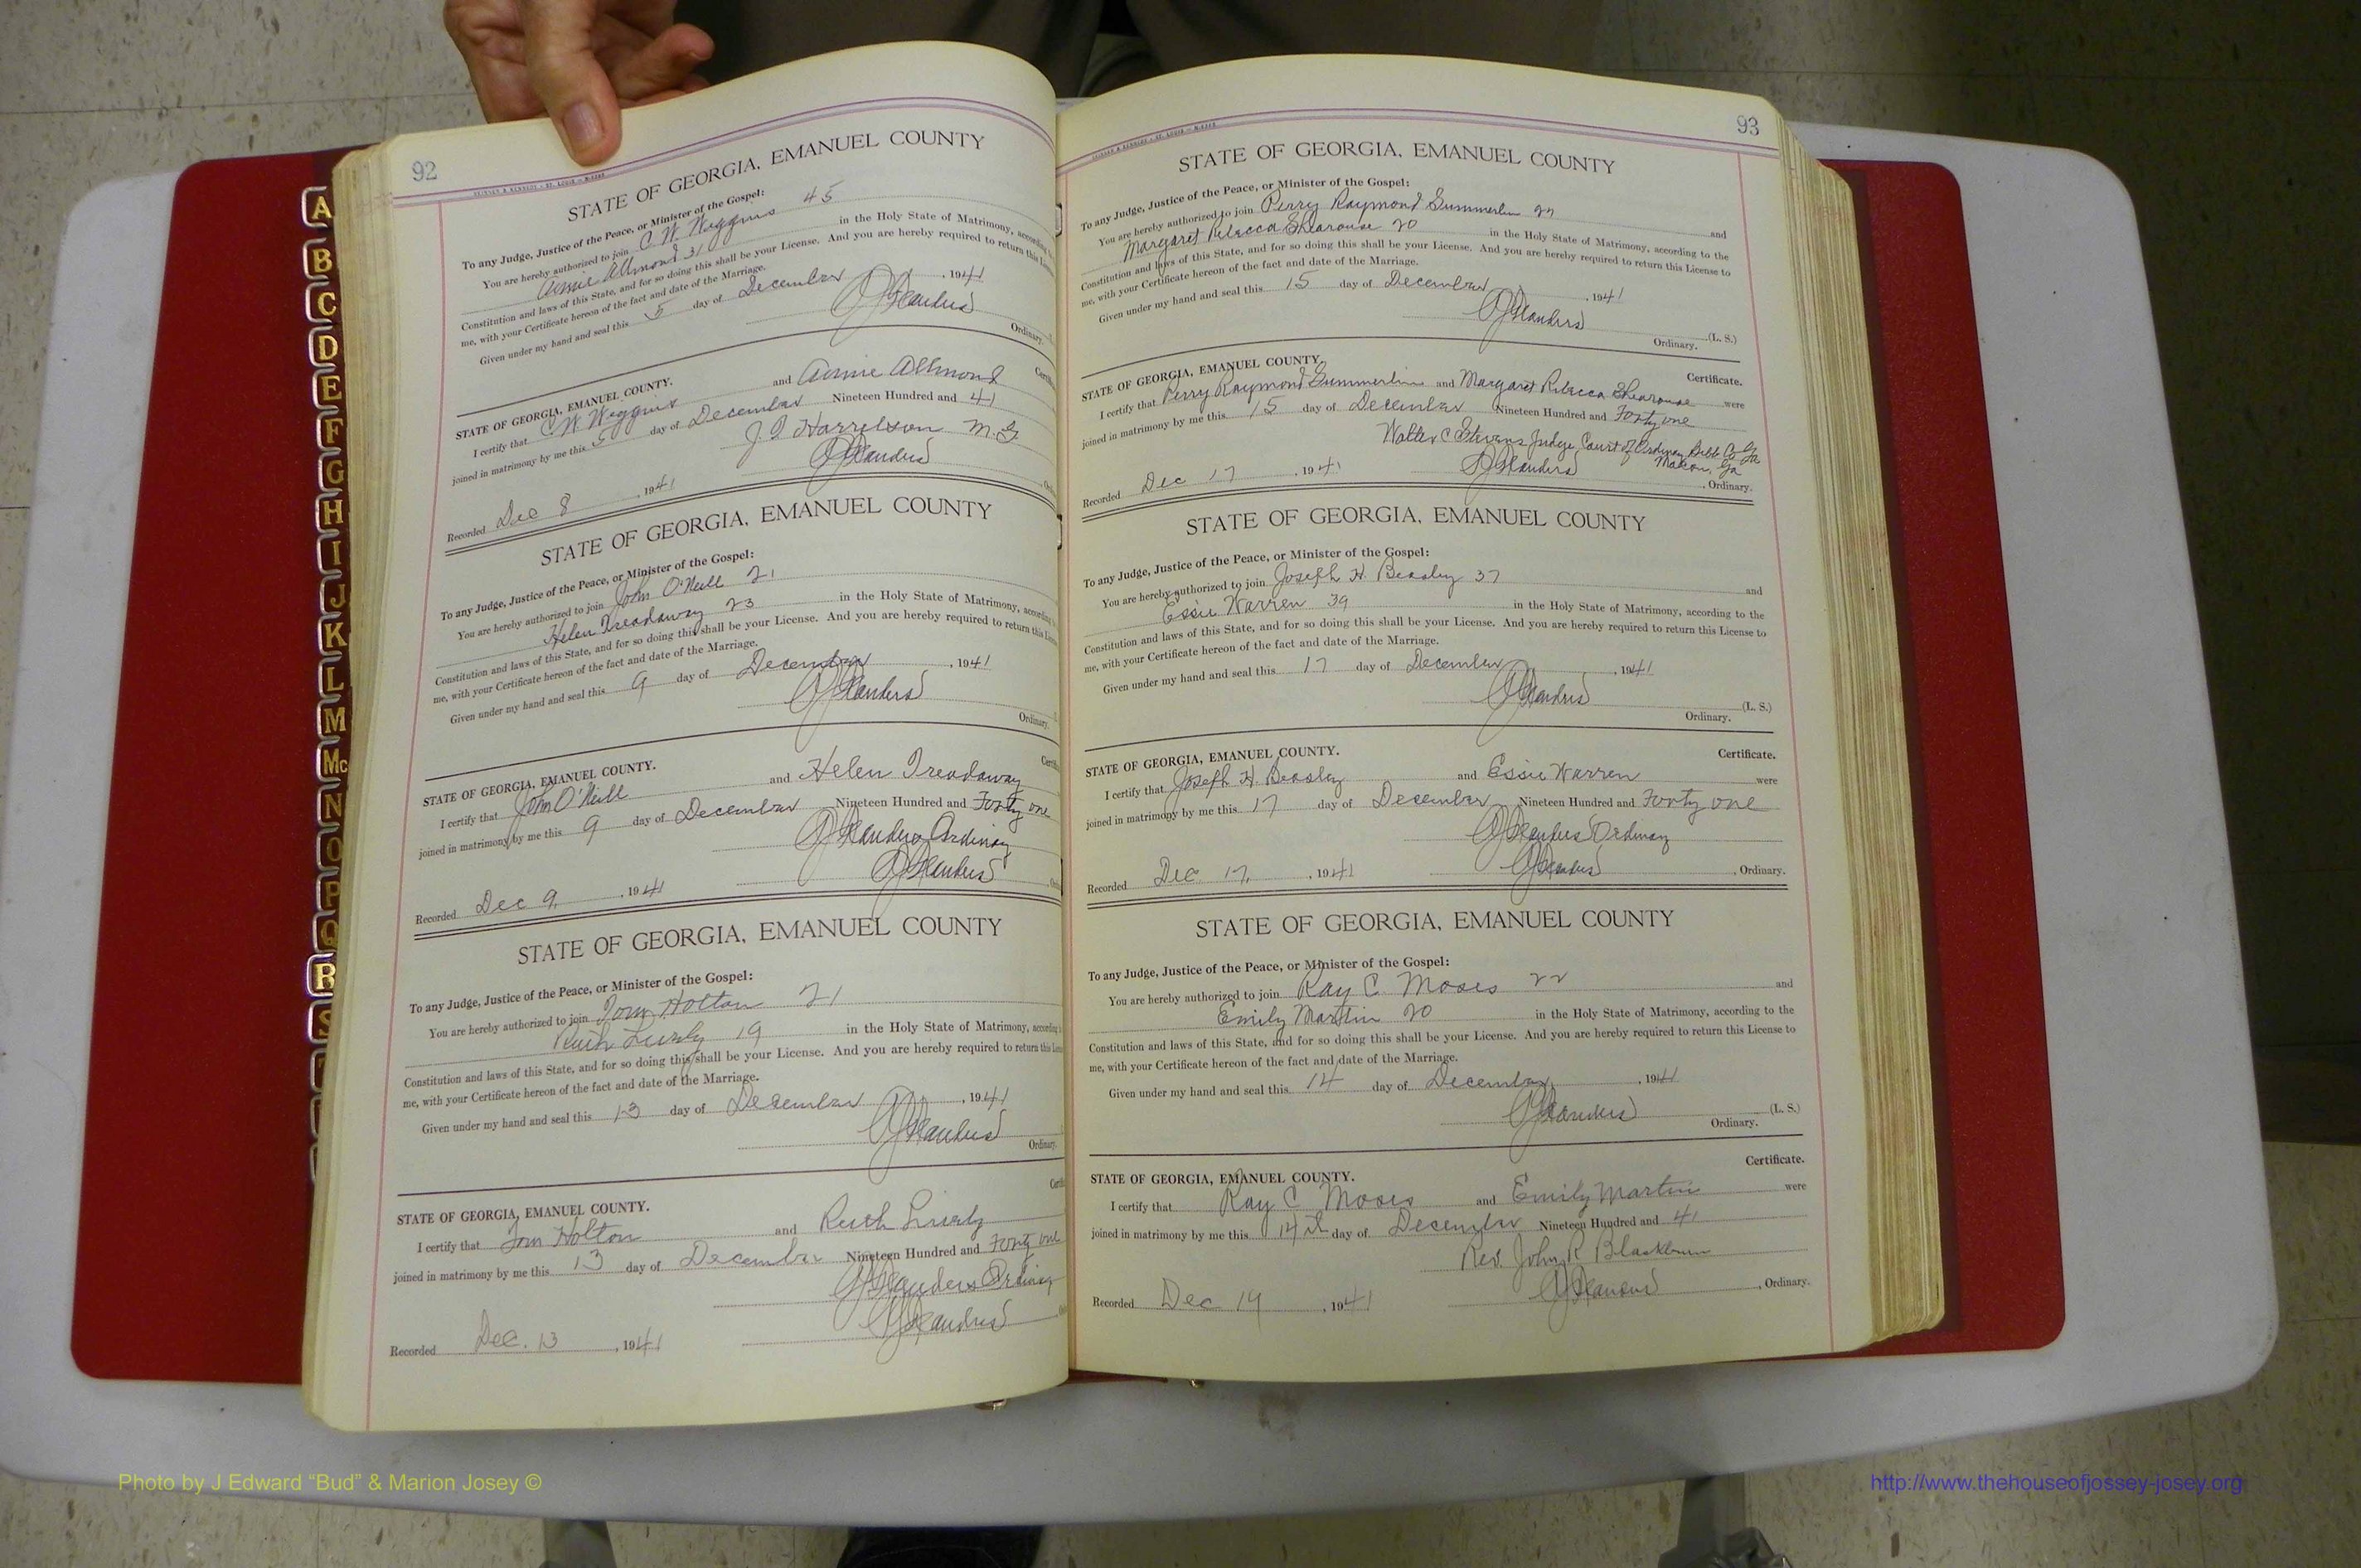 92
STATE OF GEORGIA, EMANUEL COUNTY
To any Judge, Justice of the Peace, or Minister of the Gospel:
You are hereby authorized to join C. W. Wiggins 45
Annie Allmond 31 in the Holy State of Matrimony, according
Constitution and laws of this State, and for so doing this shall be your License. And you are hereby required to return this
me, with your Certificate hereon of the fact and date of the Marriage.
Given under my hand and seal this 5 day of December, 1941
Ordinary.
STATE OF GEORGIA, EMANUEL COUNTY.
I certify that C W Wiggins and Annie Allmond
joined in matrimony by me this 5 day of December Nineteen Hundred and 41
Harrelson M. G
Recorded Dec 8, 1941
STATE OF GEORGIA, EMANUEL COUNTY
To any Judge, Justice of the Peace, or Minister of the Gospel:
You are hereby authorized to join John O'Neill 21
Helen Treadaway 23 in the Holy State of Matrimony, according
Constitution and laws of this State, and for so doing this shall be your License. And you are hereby required to return this
me, with your Certificate hereon of the fact and date of the Marriage.
Given under my hand and seal this 9 day of December, 1941
Ordinary.
STATE OF GEORGIA, EMANUEL COUNTY.
I certify that John O'Neill and Helen Treadaway
joined in matrimony by me this 9 day of December Nineteen Hundred and Forty one
Ordinary
Recorded Dec 9, 1941
STATE OF GEORGIA, EMANUEL COUNTY
To any Judge, Justice of the Peace, or Minister of the Gospel:
You are hereby authorized to join Tom Holton 21
Ruth 19 in the Holy State of Matrimony, according
Constitution and laws of this State, and for so doing this shall be your License. And you are hereby required to return this
me, with your Certificate hereon of the fact and date of the Marriage.
Given under my hand and seal this 13 day of December, 1941
Ordinary.
STATE OF GEORGIA, EMANUEL COUNTY.
I certify that Tom Holton and Ruth
joined in matrimony by me this 13 day of December Nineteen Hundred and Forty one
Ordinary
Recorded Dec. 13, 1941
93
STATE OF GEORGIA, EMANUEL COUNTY
To any Judge, Justice of the Peace, or Minister of the Gospel:
You are hereby authorized to join Perry Raymond Summerlin and
Margaret Rebecca Shearouse 20 in the Holy State of Matrimony, according to the
Constitution and laws of this State, and for so doing this shall be your License. And you are hereby required to return this License to
me, with your Certificate hereon of the fact and date of the Marriage.
Given under my hand and seal this 15 day of December, 1941
(L. S.)
Ordinary.
STATE OF GEORGIA, EMANUEL COUNTY. Certificate.
I certify that Perry Raymond Summerlin and Margaret Rebecca Shearouse were
joined in matrimony by me this 15 day of December Nineteen Hundred and Forty one
Walter C Stevens Judge, Court of Ordinary, Bibb Co Ga
Macon, Ga
Recorded Dec 17, 1941 Ordinary.
STATE OF GEORGIA, EMANUEL COUNTY
To any Judge, Justice of the Peace, or Minister of the Gospel:
You are hereby authorized to join Joseph H. Beasley 37 and
Essie Warren 39 in the Holy State of Matrimony, according to the
Constitution and laws of this State, and for so doing this shall be your License. And you are hereby required to return this License to
me, with your Certificate hereon of the fact and date of the Marriage.
Given under my hand and seal this 17 day of December, 1941
(L. S.)
Ordinary.
STATE OF GEORGIA, EMANUEL COUNTY. Certificate.
I certify that Joseph H. Beasley and Essie Warren were
joined in matrimony by me this 17 day of December Nineteen Hundred and Forty one
Ordinary
Recorded Dec. 17, 1941 Ordinary.
STATE OF GEORGIA, EMANUEL COUNTY
To any Judge, Justice of the Peace, or Minister of the Gospel:
You are hereby authorized to join Ray C. Moses 22 and
Emily Martin 20 in the Holy State of Matrimony, according to the
Constitution and laws of this State, and for so doing this shall be your License. And you are hereby required to return this License to
me, with your Certificate hereon of the fact and date of the Marriage.
Given under my hand and seal this 14 day of December, 1941
(L. S.)
Ordinary.
STATE OF GEORGIA, EMANUEL COUNTY. Certificate.
I certify that Ray C Moses and Emily Martin were
joined in matrimony by me this 14th day of December Nineteen Hundred and 41
Rev. John R Blackburn
Recorded Dec 19, 1941 Ordinary.
A
B
C
D
E
F
G
H
I
J
K
L
M
Mc
N
O
P
Q
R
S
Photo by J Edward “Bud” & Marion Josey ©
http://www.thehouseofjossey-josey.org